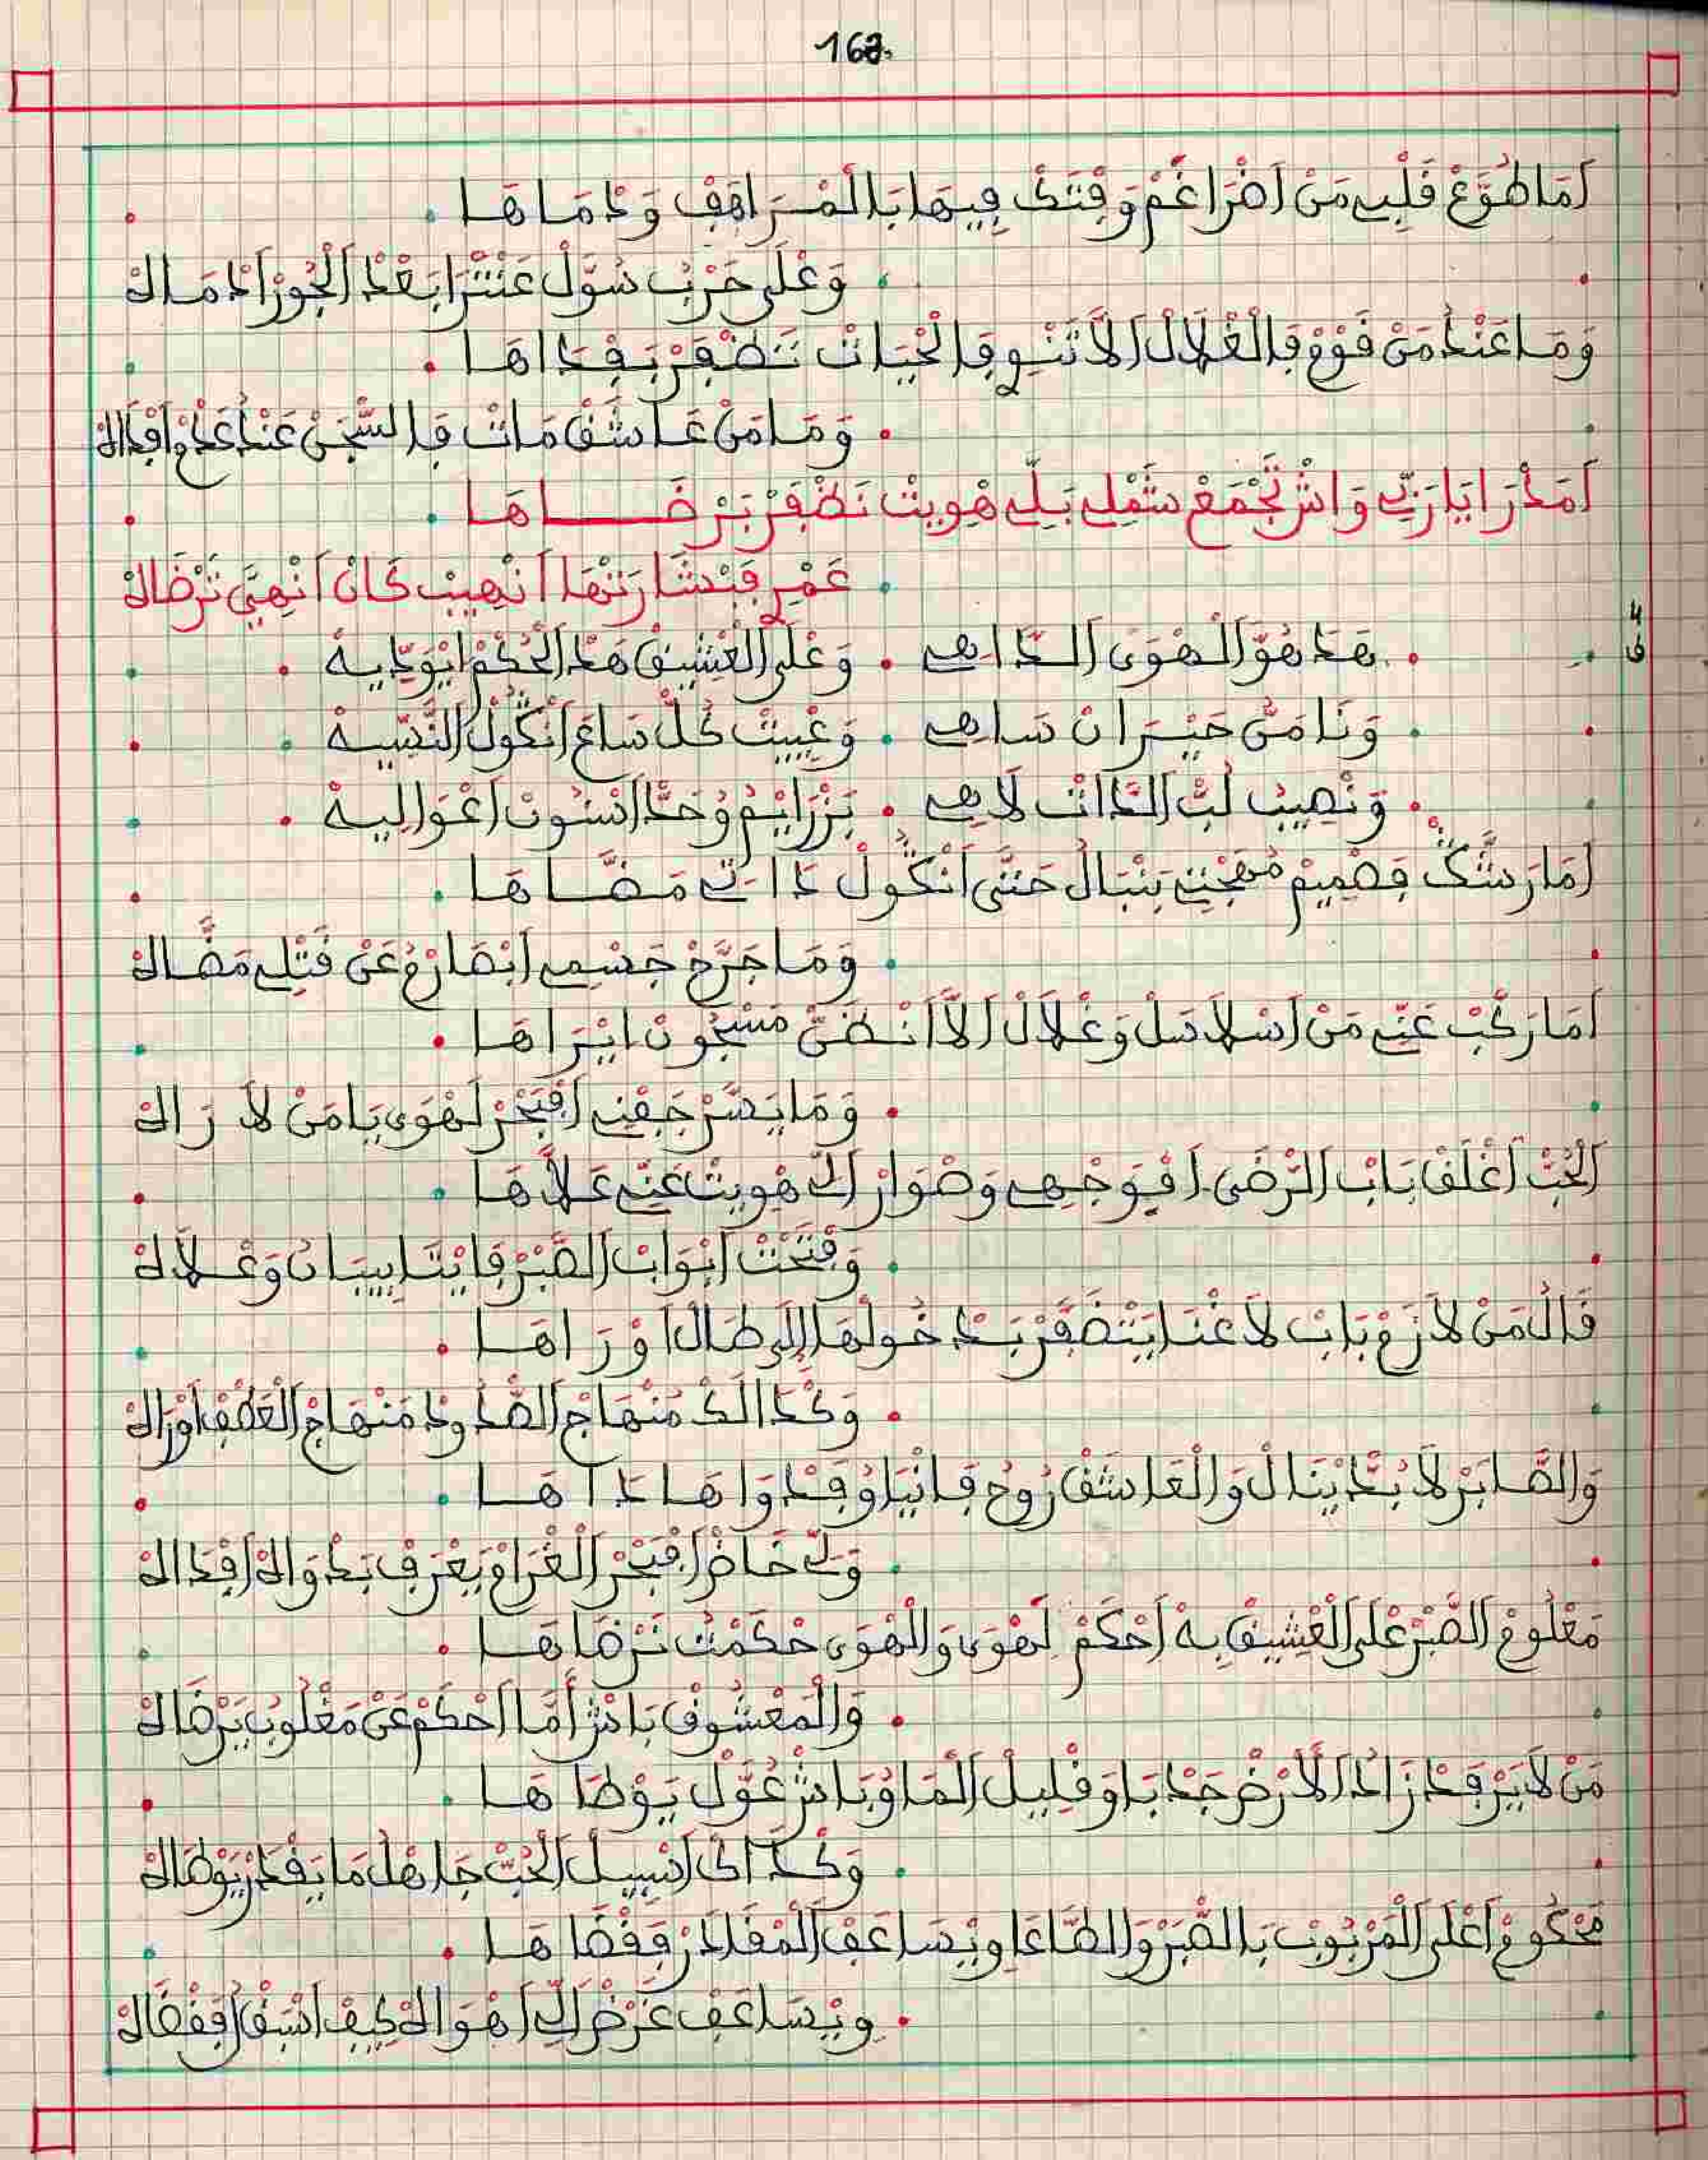 162.
اَمَا طُوَّعْ قَلْبِي مَنْ اَضْرَاغَمْ وَفْتَكْ فِيهَا بَالْمْرَاهَفْ وَدْمَاهَا
وَعْلَى حَرْبُ سَوَّلْ عَنْتْرَا بَعْدْ اَلْجُورْ اَدْمَاكْ
وَمَا عَنْدُ مَنْ قَوْمْ فَالْغْلَالْ اَلَّا تَنْوِي فَالْحْيَاتْ تَظْفَرْ بَفْدَاهَا
وَمَا مَنْ عَاشَقْ مَاتْ فَالسَّجَنْ عَنْدُ عْدَمْ اَفْدَاكْ
اَمَدْرَا يَا رَبِّي وَاشْ تَجْمَعْ شَمْلِي بَلِّي هْوِيتْ نَظْفَرْ بَرْضَاهَا
عَمْرِي فَبْشَارَتْهَا اَنْهِيبْ كَانْ اَنْهِيَّ تَرْضَاكْ
4
ف
هَدَا هُوَّ اَلْهْوَى اَلدَّاهِي . وَعْلَى اَلْعْشِيقْ هَدَ اَلْحُكْمْ اِيْوَدِّيهْ
وَنَا مَنُّ حَيْرَانْ سَاهِي . وَعْيِيتْ كُلّْ سَاعَ اَنْكُولْ اَنْسِيهْ
وَنْصِيبْ لَبّْ اَلدَّاتْ لَاهِي . بَزْرَايْمُ وُحَدَّ اَسُّونْ اَعْوَالِيهْ
اَمَا رَشَّكْ فَصْمِيمْ مُهَجْتِي بَنْبَالُ حَتَّى اَنْكُولْ دَاتِي مَضَّاهَا
وَمَا جَرَّحْ جَسْمِي اَبْصَارْمُ عَنْ قَتْلِي مَضَّاكْ
اَمَا رَكَّبْ عَنِّي مَنْ اَسْلَاسَلْ وَغْلَالْ اَلَّا اَنْضَنّْ مَسْجُونْ اِيْرَاهَا
وَمَا يَصَّرْ جَفْنِي اَفْبَحْرْ لَهْوَى يَا مَنْ لَا رَاكْ
اَلْحُبّْ اَغْلَقْ بَابْ اَلرّْضَى اَفْوَجْهِي وَصْوَارْ اَلِّي هْوِيتْ عَنِّي عَلَّاهَا
وَفْتَحْتْ اَبْوَابْ اَلصّْبَرْ فَايْتَّا بِيبَانُ وَعْلَّاكْ
قَالُ مَنْ لَازَمْ بَابْ لَاغْنَا يَتْضَفَّرْ بَدْخُولْهَا اِلَى طَالْ اَوْرَاهَا
وَكْدَالَكْ مَنْهَاجْ اَلصّْدُودْ مَنْهَاجْ اَلْعَطْفْ اَوْرَاكْ
وَالصَّابَرْ لَا بُدَّ اِيْنَالْ وَالْعَاشَقْ رُوحُ فَانْيَا وُفَدْوَاهَا دَاهَا
وَلِّي خَاضْ اَفْبَحْرْ اَلْغْرَامْ يَعْرَفْ بَدْوَاكْ اَفْدَاكْ
مَعْلُومْ اَلصّْبَرْ عْلَى اَلْعْشِيقْ بِهْ اَحْكَمْ لَهْوَى وَالْهْوَى حْكَمْتُ نَرْضَاهَا
وَالْمَعْشُوقْ بَاشْ اَمَّا اَحْكَمْ عَنْ مَغْلُوبُ يَرْضَاكْ
مَنْ لَا يَرْفَدْ زَادْ اَلَّارْضْ جَدْبَا وَقْلِيلْ اَلْمَا وُبَاشْ عَوَّلْ يَوْطَاهَا
وَكْدَاكْ اَسْبِيلْ اَلْحُبّْ جَاهْلُ مَا يَقْدَرْ يَوْطَاكْ
مَحْكُومْ اَعْلَى اَلْمَرْبُوبْ بَالصّْبَرْ وَالطَّاعَا وِيْسَاعَفْ اَلْمْقَادَرْ فَقْضَاهَا
وِيْسَاعَفْ غَرْضْ اَلِّي اَهْوَاكْ كِيفْ اَسْبَقْ اَفَقْضَاكْ